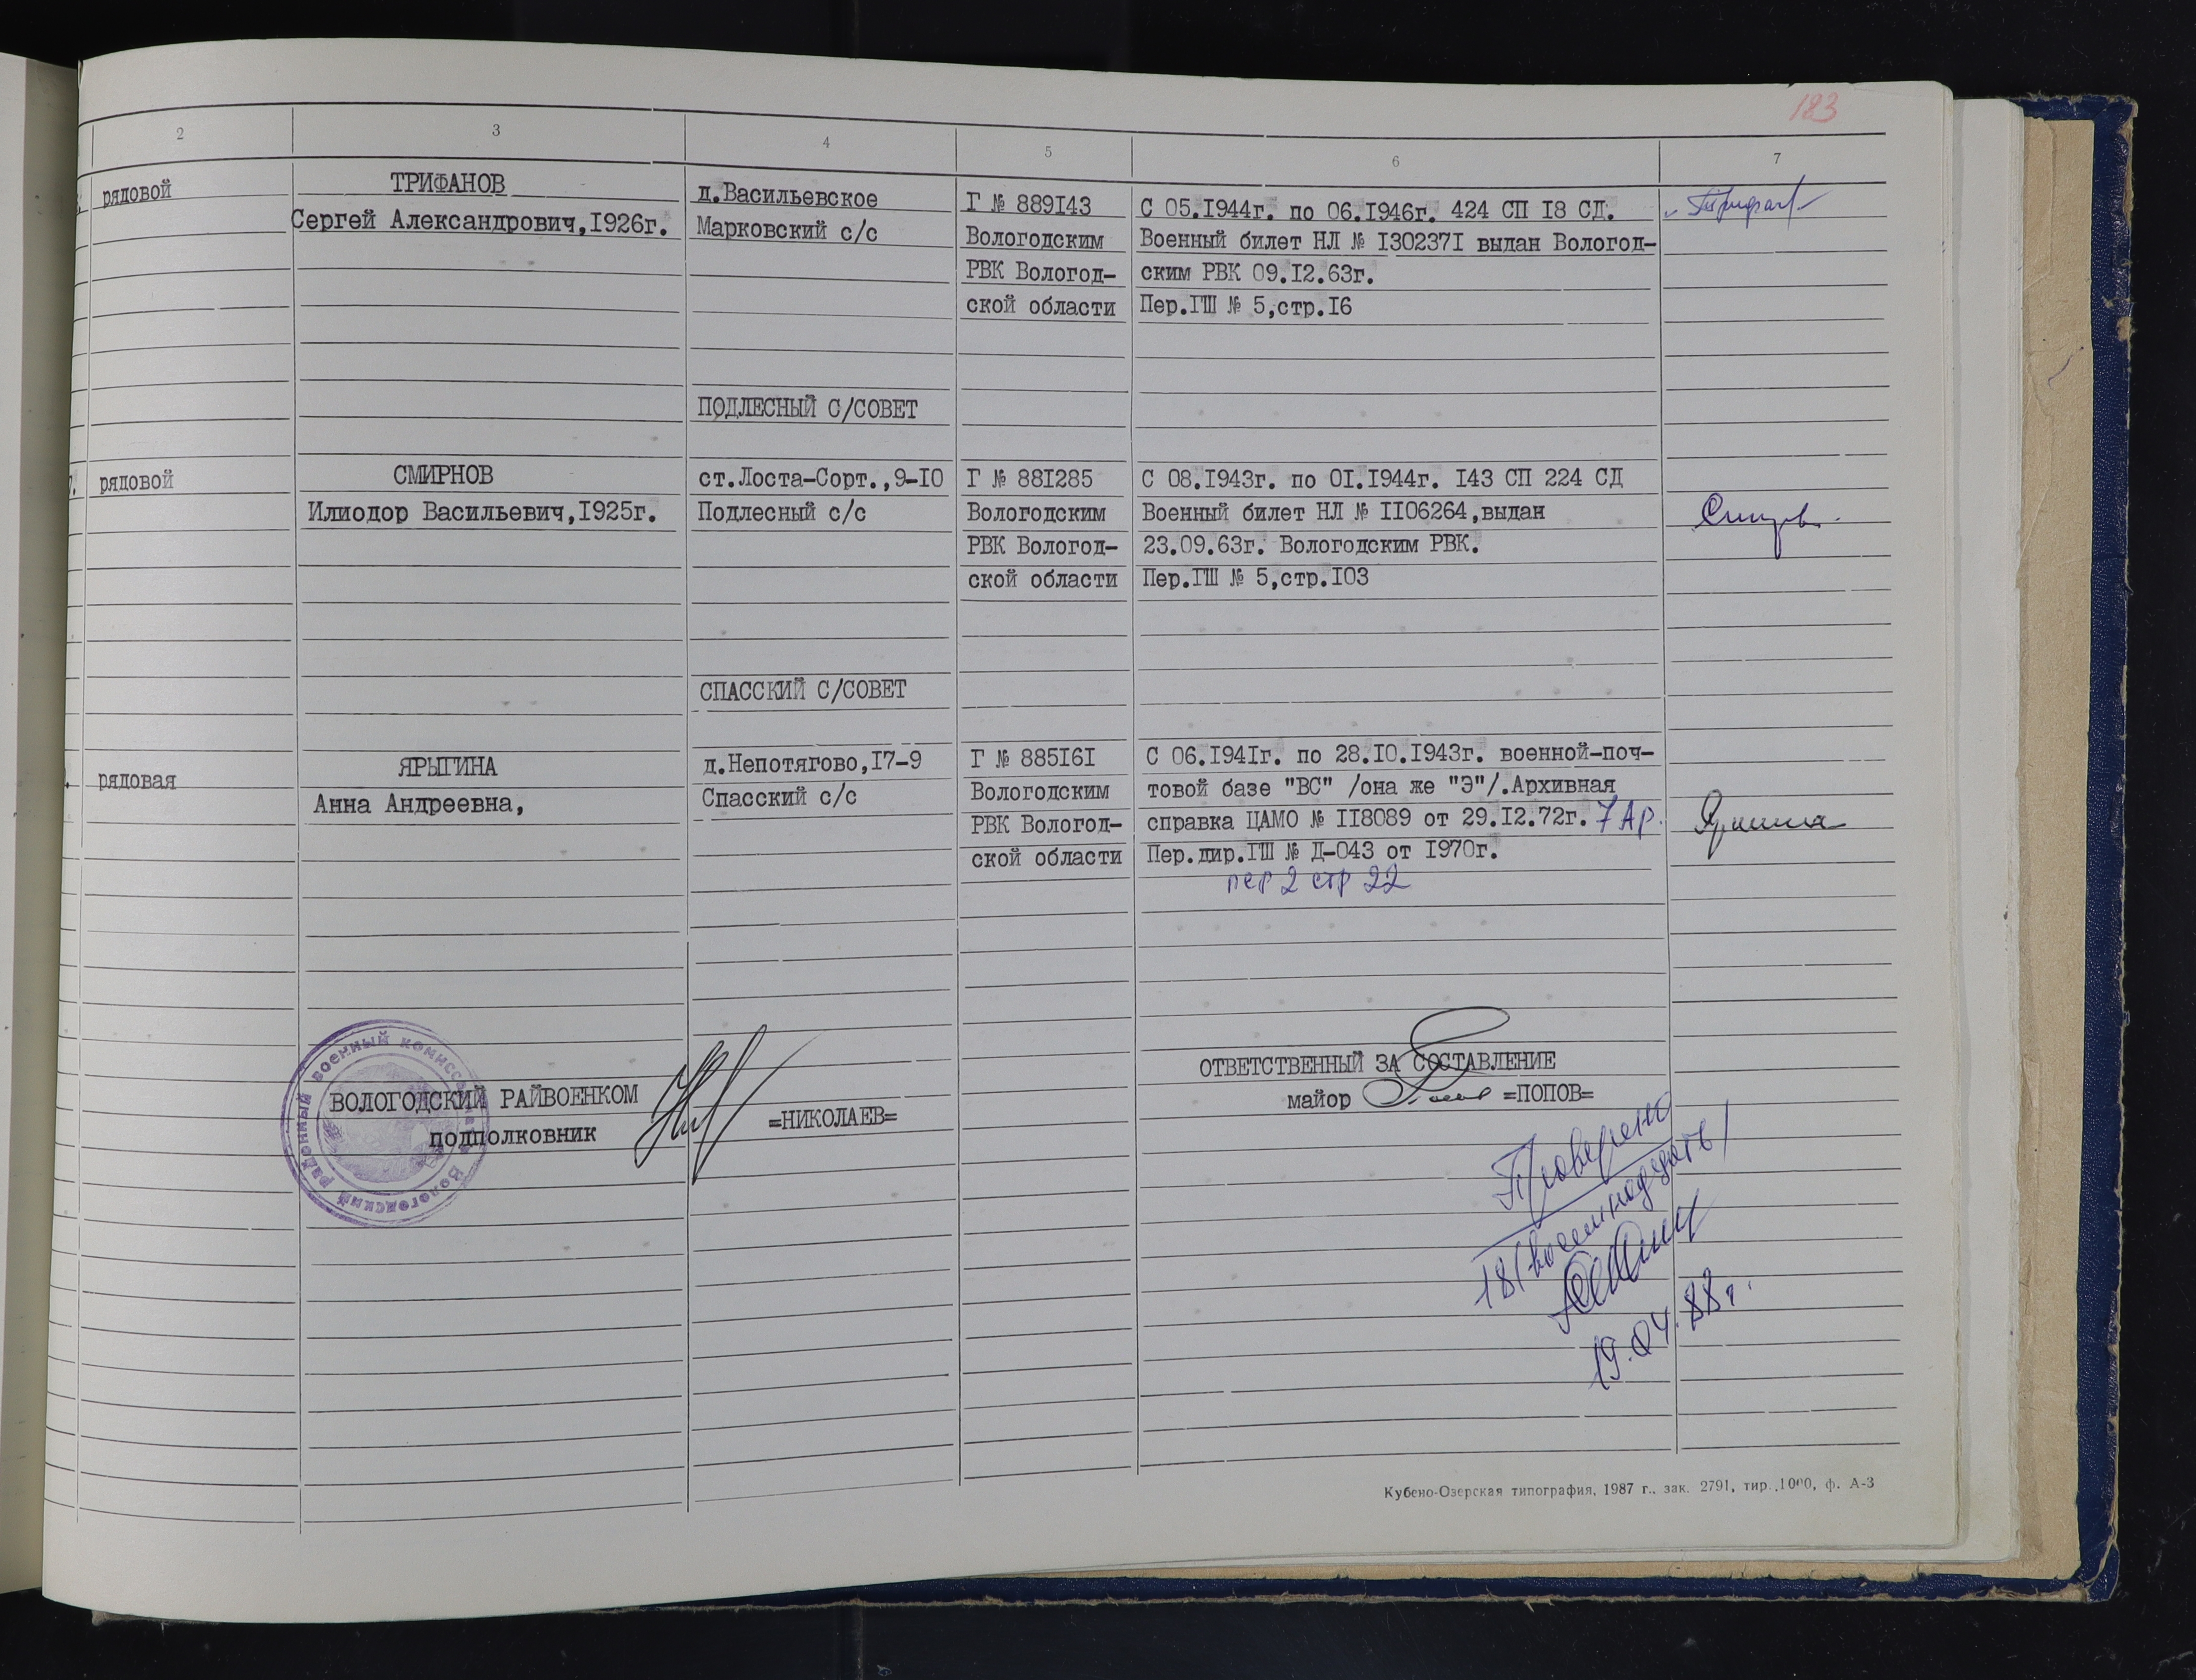 183
2 3 4 5 6 7
рядовой
ТРИФАНОВ
Сергей Александрович,I926г.
д.Васильевское
Марковский с/с
Г № 889I43
Вологодским
РВК Вологод-
ской области
С 05.I944г. по 06.I946г. 424 СП I8 СД.
Военный билет НЛ № I30237I выдан Вологод-
ским РВК 09.I2.63г.
Пер.ГШ № 5,стр.I6
ПОДЛЕСНЫЙ С/СОВЕТ
7.
рядовой
СМИРНОВ
Илиодор Васильевич,I925г.
ст.Лоста-Сорт.,9-I0
Подлесный с/с
Г № 88I285
Вологодским
РВК Вологод-
ской области
С 08.I943г. по 0I.I944г. I43 СП 224 СД
Военный билет НЛ № II06264,выдан
23.09.63г. Вологодским РВК.
Пер.ГШ № 5,стр.I03
СПАССКИЙ С/СОВЕТ
рядовая
ЯРЫГИНА
Анна Андреевна,
д.Непотягово,I7-9
Спасский с/с
Г № 885I6I
Вологодским
РВК Вологод-
ской области
С 06.I94Iг. по 28.I0.I943г. военной-поч-
товой базе "ВС" /она же "Э"/.Архивная
справка ЦАМО № II8089 от 29.I2.72г. 7 Ар.
Пер.дир.ГШ № Д-043 от I970г.
пер 2 стр 22
Вологодский районный военный комиссариат
ВОЛОГОДСКИЙ РАЙВОЕНКОМ
подполковник
=НИКОЛАЕВ=
ОТВЕТСТВЕННЫЙ ЗА СОСТАВЛЕНИЕ
майор =ПОПОВ=
Проверено
18 (восемнадцать)
19.04.88г.
Кубено-Озерская типография, 1987 г., зак. 2791, тир. 1000, ф. А-3